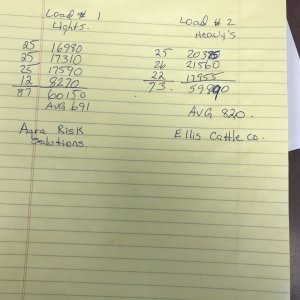 Load # 1
Lights.
25 16980
25 17310
25 17590
12 8270
87 60150
AVG 691
Agra Risk
Solutions.
Load # 2
Heavy's
25 20375
26 21560
22 17955
73. 59890
AVG 820.
Ellis Cattle co.